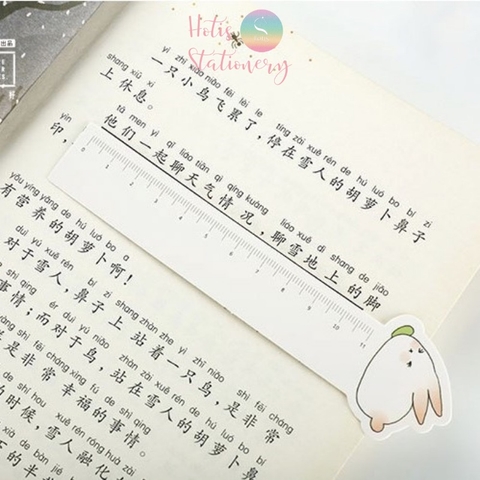 Hoti's
Stationery
yì zhī xiǎo niǎo fēi lèi le tíng zài xuě rén de hú luó bo bí zi
一只小鸟飞累了，停在雪人的胡萝卜鼻子
shang xiū xi
上休息。
tā men yì qǐ liáo tiān qì qíng kuàng liáo xuě dì shang de jiǎo
他们一起聊天气情况，聊雪地上的脚
yìn
印，
0 1 2 3 4 5 6 7 8 9 10 11
yǒu yíng yǎng de hú luó bo a
有营养的胡萝卜啊！
duì yú xuě rén bí zi shang zhàn zhe yì zhī niǎo shì fēi cháng
对于雪人，鼻子上站着一只鸟，是非常
shì qing ér duì yú niǎo zhàn zài xuě rén de hú luó bo bí
事情；而对于鸟，站在雪人的胡萝卜鼻
shì fēi cháng xìng fú de shì qing
是非常幸福的事情。
de shí hou xuě rén róng huà
的时候，雪人融化
xià de bàn jié
下的半